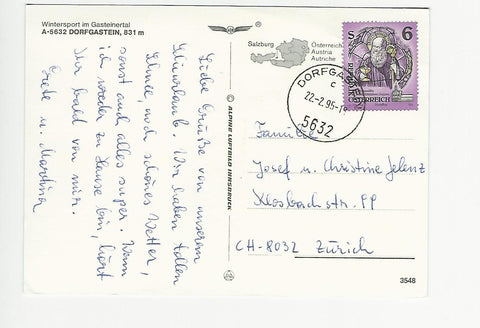 Wintersport im Gasteinertal
A-5632 DORFGASTEIN, 831 m
Liebe Grüße von unserem
Skiurlaub. Wir haben tollen
Schnee, noch schönes Wetter,
sonst auch alles super. Wenn
ich wieder zu Hause bin, hört
Ihr bald von mir.
Grete u. Martina
© ALPINE LUFTBILD INNSBRUCK
Salzburg
Österreich
Austria
Autriche
DORFGASTEIN
c
22-2.95-1
5632
S 6
REPUBLIK
ÖSTERREICH
Familie
Josef u. Christine Jelenz
Klosbachstr. PP
CH-8032 Zürich
3548